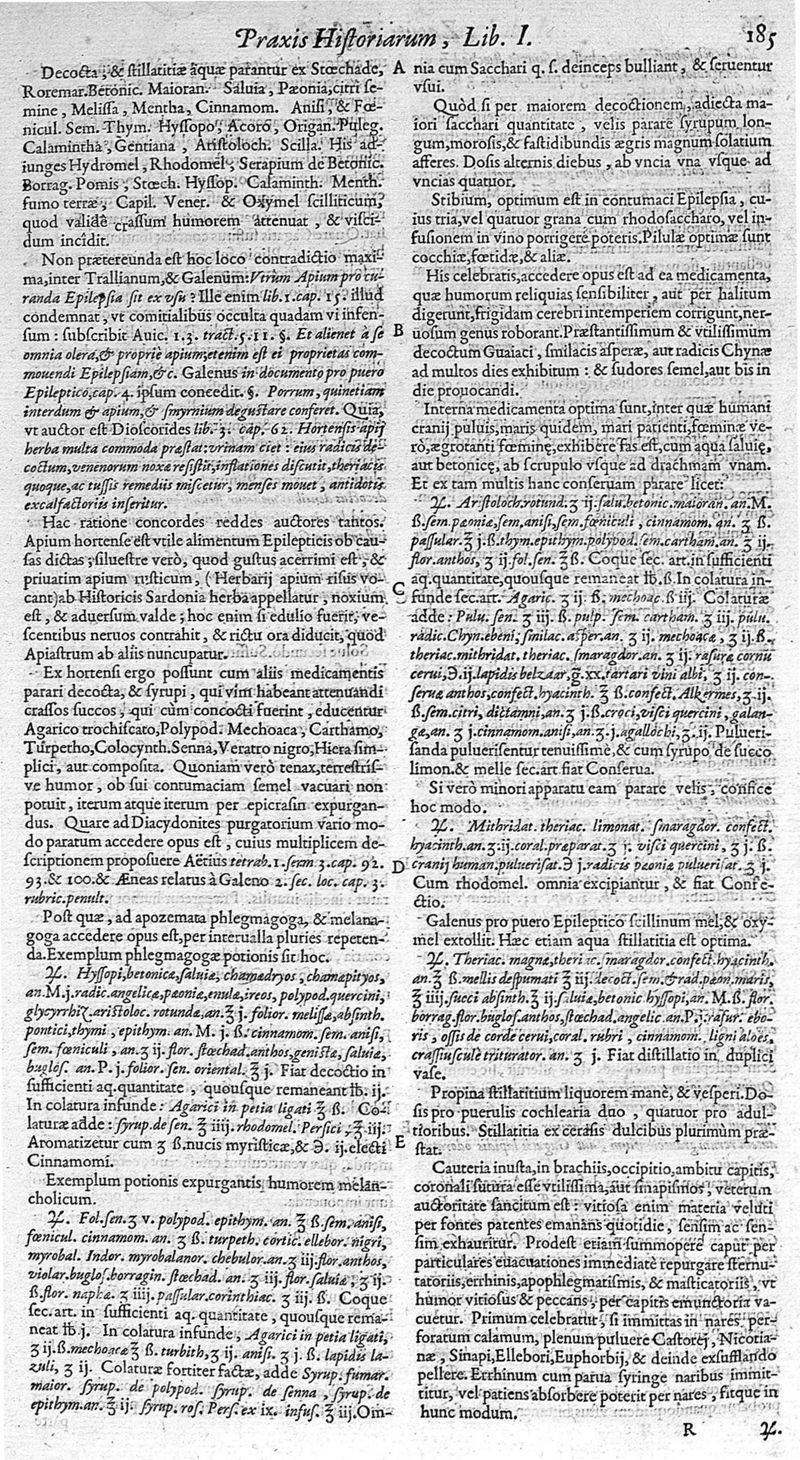 Praxis Historiarum, Lib. I. 185
Decocta, & stillatitiæ aquæ parantur ex Stœchade,
Roremar. Betonic. Maioran. Saluia, Pæonia, citri se-
mine, Melissa, Mentha, Cinnamom. Anisi, & Fœ-
nicul. Sem. Thym. Hyssopo, Acoro, Origan. Puleg.
Calamintha, Gentiana, Aristoloch. Scilla. His ad-
iunges Hydromel, Rhodomel, Serapium de Betonic.
Borrag. Pomis, Stœch. Hyssop. Calaminth. Menth.
fumo terræ, Capil. Vener. & Oxymel scilliticum,
quod validè crassum humorem attenuat, & visci-
dum incidit.
Non prætereunda est hoc loco contradictio maxi-
ma, inter Trallianum, & Galenum: Vtrum Apium pro cu-
randa Epilepsia sit ex vsu? Ille enim lib. 1. cap. 15. illud
condemnat, vt comitialibus occulta quadam vi infen-
sum: subscribit Auic. 1. 3. tract. 5. 11. §. Et alienet à se
omnia olera, & propriè apium; etenim est ei proprietas com-
mouendi Epilepsiam, &c. Galenus in documento pro puero
Epileptico, cap. 4. ipsum concedit. §. Porrum, quinetiam
interdum & apium, & smyrnium degustare conferet. Quia,
vt auctor est Dioscorides lib. 3. cap. 62. Hortensis apij
herba multa commoda præstat: vrinam ciet: eius radicis de-
coctum, venenorum noxæ resistit, inflationes discutit, theriacis
quoque, ac tussis remediis miscetur, menses mouet, antidotis
excalfactoriis inseritur.
Hac ratione concordes reddes auctores tantos.
Apium hortense est vtile alimentum Epilepticis ob cau-
sas dictas; siluestre verò, quod gustus acerrimi est, &
priuatim apium rusticum, (Herbarij apium risus vo-
cant) ab Historicis Sardonia herba appellatur, noxium
est, & aduersum valde; hoc enim si edulio fuerit, ve-
scentibus neruos contrahit, & rictu ora diducit, quod
Apiastrum ab aliis nuncupatur.
Ex hortensi ergo possunt cum aliis medicamentis
parari decocta, & syrupi, qui vim habeant attenuandi
crassos succos, qui cùm concocti fuerint, educentur
Agarico trochiscato, Polypod. Mechoaca, Carthamo,
Turpetho, Colocynth. Senna, Veratro nigro, Hiera sim-
plici, aut composita. Quoniam verò tenax, terrestris-
ve humor, ob sui contumaciam semel vacuari non
potuit, iterum atque iterum per epicrasin expurgan-
dus. Quare ad Diacydonites purgatorium vario mo-
do paratum accedere opus est, cuius multiplicem de-
scriptionem proposuere Aëtius tetrab. 1. serm. 3. cap. 92.
93. & 100. & Æneas relatus à Galeno 2. sec. loc. cap. 3.
rubric. penult.
Post quæ, ad apozemata phlegmagoga, & melana-
goga accedere opus est, per interualla pluries repeten-
da. Exemplum phlegmagogæ potionis sit hoc.
℞. Hyssopi, betonicæ, saluiæ, chamædryos, chamæpityos,
an. M. j. radic. angelicæ, pæoniæ, enulæ, ireos, polypod. quercini,
glycyrrhiz. aristoloc. rotundæ, an. ʒ j. folior. melissæ, absinth.
pontici, thymi, epithym. an. M. j. ß. cinnamom. sem. anisi,
sem. fœniculi, an. ʒ ij. flor. stœchad. anthos, genistæ, saluiæ,
buglos. an. P. j. folior. sen. oriental. ℥ j. Fiat decoctio in
sufficienti aq. quantitate, quousque remaneant ℔. ij.
In colatura infunde: Agarici in petia ligati ℥ ß. Co-
laturæ adde: syrup. de sen. ℥ iiij. rhodomel. Persici, ℥ iij.
Aromatizetur cum ʒ ß. nucis myristicæ, & ℈. ij. electi
Cinnamomi.
Exemplum potionis expurgantis humorem melan-
cholicum.
℞. Fol. sen. ʒ v. polypod. epithym. an. ℥ ß. sem. anisi,
fœnicul. cinnamom. an. ʒ ß. turpeth. cortic. ellebor. nigri,
myrobal. Indor. myrobalanor. chebulor. an. ʒ iij. flor. anthos,
violar. buglos. borragin. stœchad. an. ʒ iij. flor. saluiæ, ʒ ij.
ß. flor. naphæ. ʒ iiij. passular. corinthiac. ʒ iij. ß. Coque
sec. art. in sufficienti aq. quantitate, quousque rema-
neat ℔ j. In colatura infunde, Agarici in petia ligati,
ʒ ij. ß. mechoacæ ℥ ß. turbith, ʒ ij. anisi. ʒ j. ß. lapidis la-
zuli, ʒ ij. Colaturæ fortiter factæ, adde Syrup. fumar.
maior. syrup. de polypod. syrup. de senna, syrup. de
epithym. an. ℥ ij. syrup. ros. Pers. ex ix. infus. ℥ iij. Om-
A
nia cum Sacchari q. s. deinceps bulliant, & seruentur
vsui.
Quòd si per maiorem decoctionem, adiecta ma-
iori sacchari quantitate, velis parare syrupum lon-
gum, morosis, & fastidibundis ægris magnum solatium
afferes. Dosis alternis diebus, ab vncia vna vsque ad
vncias quatuor.
Stibium, optimum est in contumaci Epilepsia, cu-
ius tria, vel quatuor grana cum rhodosaccharo, vel in-
fusionem in vino porrigere poteris. Pilulæ optimæ sunt
cocchiæ, fœtidæ, & aliæ.
His celebratis, accedere opus est ad ea medicamenta,
quæ humorum reliquias sensibiliter, aut per halitum
digerunt, frigidam cerebri intemperiem corrigunt, ner-
B
uosum genus roborant. Præstantissimum & vtilissimum
decoctum Guaiaci, smilacis asperæ, aut radicis Chynæ
ad multos dies exhibitum: & sudores semel, aut bis in
die prouocandi.
Interna medicamenta optima sunt, inter quæ humani
cranij puluis, maris quidem, mari patienti, fœminæ ve-
rò, ægrotanti fœminę, exhibere fas est, cum aqua saluię,
aut betonicę, ab scrupulo vsque ad drachmam vnam.
Et ex tam multis hanc conseruam parare licet:
℞. Aristoloch. rotund. ʒ ij. salu. betonic. maioran. an. M.
ß. sem. pæoniæ, sem. anisi, sem. fœniculi, cinnamom. an. ʒ ß.
passular. ℥ j. ß. thym. epithym. polypod. sem. cartham. an. ʒ ij.
flor. anthos, ʒ ij. fol. sen. ℥ ß. Coque sec. art. in sufficienti
aq. quantitate, quousque remaneat ℔. ß. In colatura in-
C
funde sec. art. Agaric. ʒ ij. ß. mechoac. ß iij. Colaturæ
adde: Pulu. sen. ʒ iij. ß. pulp. sem. cartham. ʒ iij. pulu.
radic. Chyn. ebeni, smilac. asper. an. ʒ ij. mechoacæ, ʒ ij. ß.
theriac. mithridat. theriac. smaragdor. an. ʒ ij. rasuræ cornu
cerui, ℈. ij. lapidis belzaar, g. xx. tartari vini albi, ʒ ij. con-
seruæ anthos, confect. hyacinth. ℥ ß. confect. Alkermes, ʒ. ij.
ß. sem. citri, dictamni, an. ʒ j. ß. croci, visci quercini, galan-
gæ, an. ʒ j. cinnamom. anisi, an. ʒ. j. agallochi, ʒ. ij. Pulueri-
sanda puluerisentur tenuissimè, & cum syrupo de succo
limon. & melle sec. art. fiat Conserua.
Si verò minori apparatu eam parare velis, confice
hoc modo.
℞. Mithridat. theriac. limonat. smaragdor. confect.
hyacinth. an. ʒ. ij. coral. præparat. ʒ j. visci quercini, ʒ j. ß.
D
cranij human. puluerisat. ℈ j. radicis pæoniæ puluerisat. ʒ j.
Cum rhodomel. omnia excipiantur, & fiat Confe-
ctio.
Galenus pro puero Epileptico scillinum mel, & oxy-
mel extollit. Hæc etiam aqua stillatitia est optima.
℞. Theriac. magnæ, theriac. smaragdor. confect. hyacinth.
an. ℥ ß. mellis despumati ℥ iij. decoct. sem. & rad. pæon. maris,
℥ iiij. succi absinth. ℥ ij. saluiæ, betonic. hyssopi, an. M. ß. flor.
borrag. flor. buglos. anthos, stœchad. angelic. an. P. j. rasur. ebo-
ris, ossis de corde cerui, coral. rubri, cinnamom. ligni aloes,
crassiusculè triturator. an. ʒ j. Fiat distillatio in duplici
vase.
Propina stillatitium liquorem manè, & vesperi. Do-
sis pro puerulis cochlearia duo, quatuor pro adul-
tioribus. Stillatitia ex cerasis dulcibus plurimùm præ-
E
stat.
Cauteria inusta, in brachijs, occipitio, ambitu capitis,
coronali sutura esse vtilissima, aut sinapismos, veterum
auctoritate sancitum est: vitiosa enim materia veluti
per fontes patentes emanans quotidie, sensim ac sen-
sim exhauritur. Prodest etiam summopere caput per
particulares euacuationes immediatè repurgare sternu-
tatoriis, errhinis, apophlegmatismis, & masticatoriis, vt
humor vitiosus & peccans, per capitis emunctoria va-
cuetur. Primum celebratur, si immittas in nares, per-
foratum calamum, plenum puluere Castorej, Nicotia-
næ, Sinapi, Ellebori, Euphorbij, & deinde exsufflando
pellere. Errhinum cum parua syringe naribus immit-
titur, vel patiens absorbere poterit per nares, fitque in
hunc modum.
R
℞.